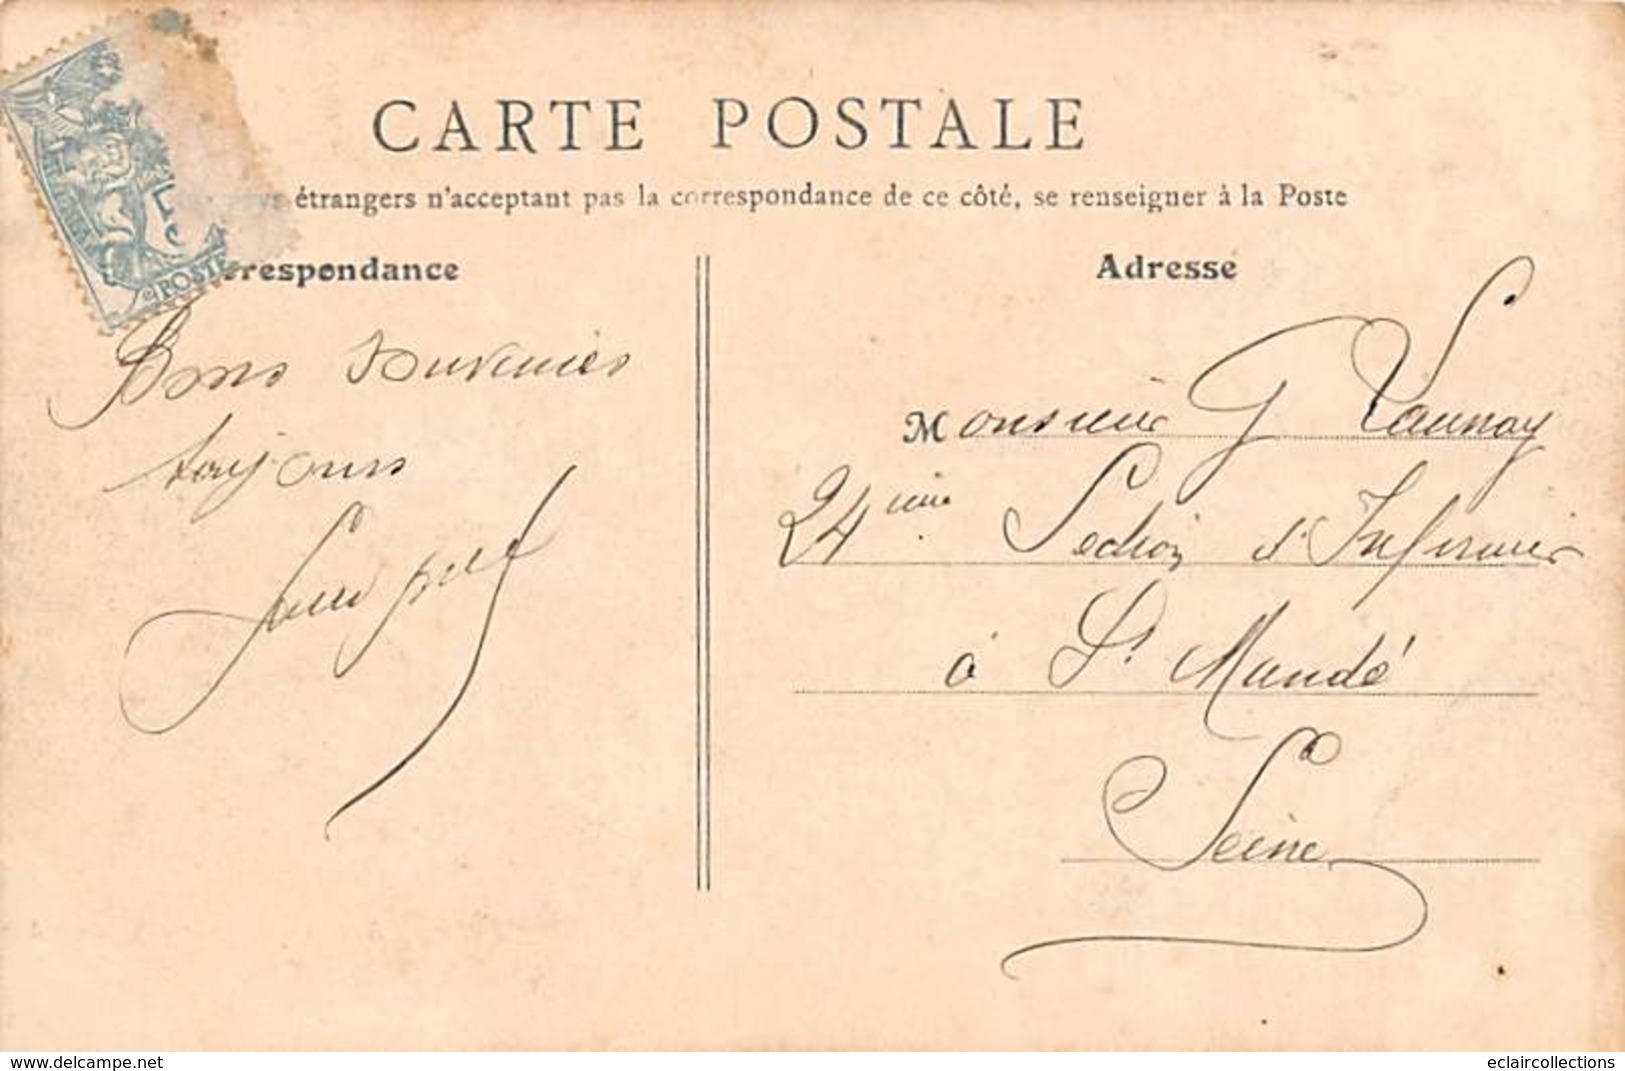 CARTE POSTALE
pays étrangers n'acceptant pas la correspondance de ce côté, se renseigner à la Poste
respondance
Adresse
5
POSTE
Bons souvenirs
toujours
Monsieur G Launay
24ème Section d'Infirmier
à St Mandé
Seine
www.delcampe.net
eclaircollections